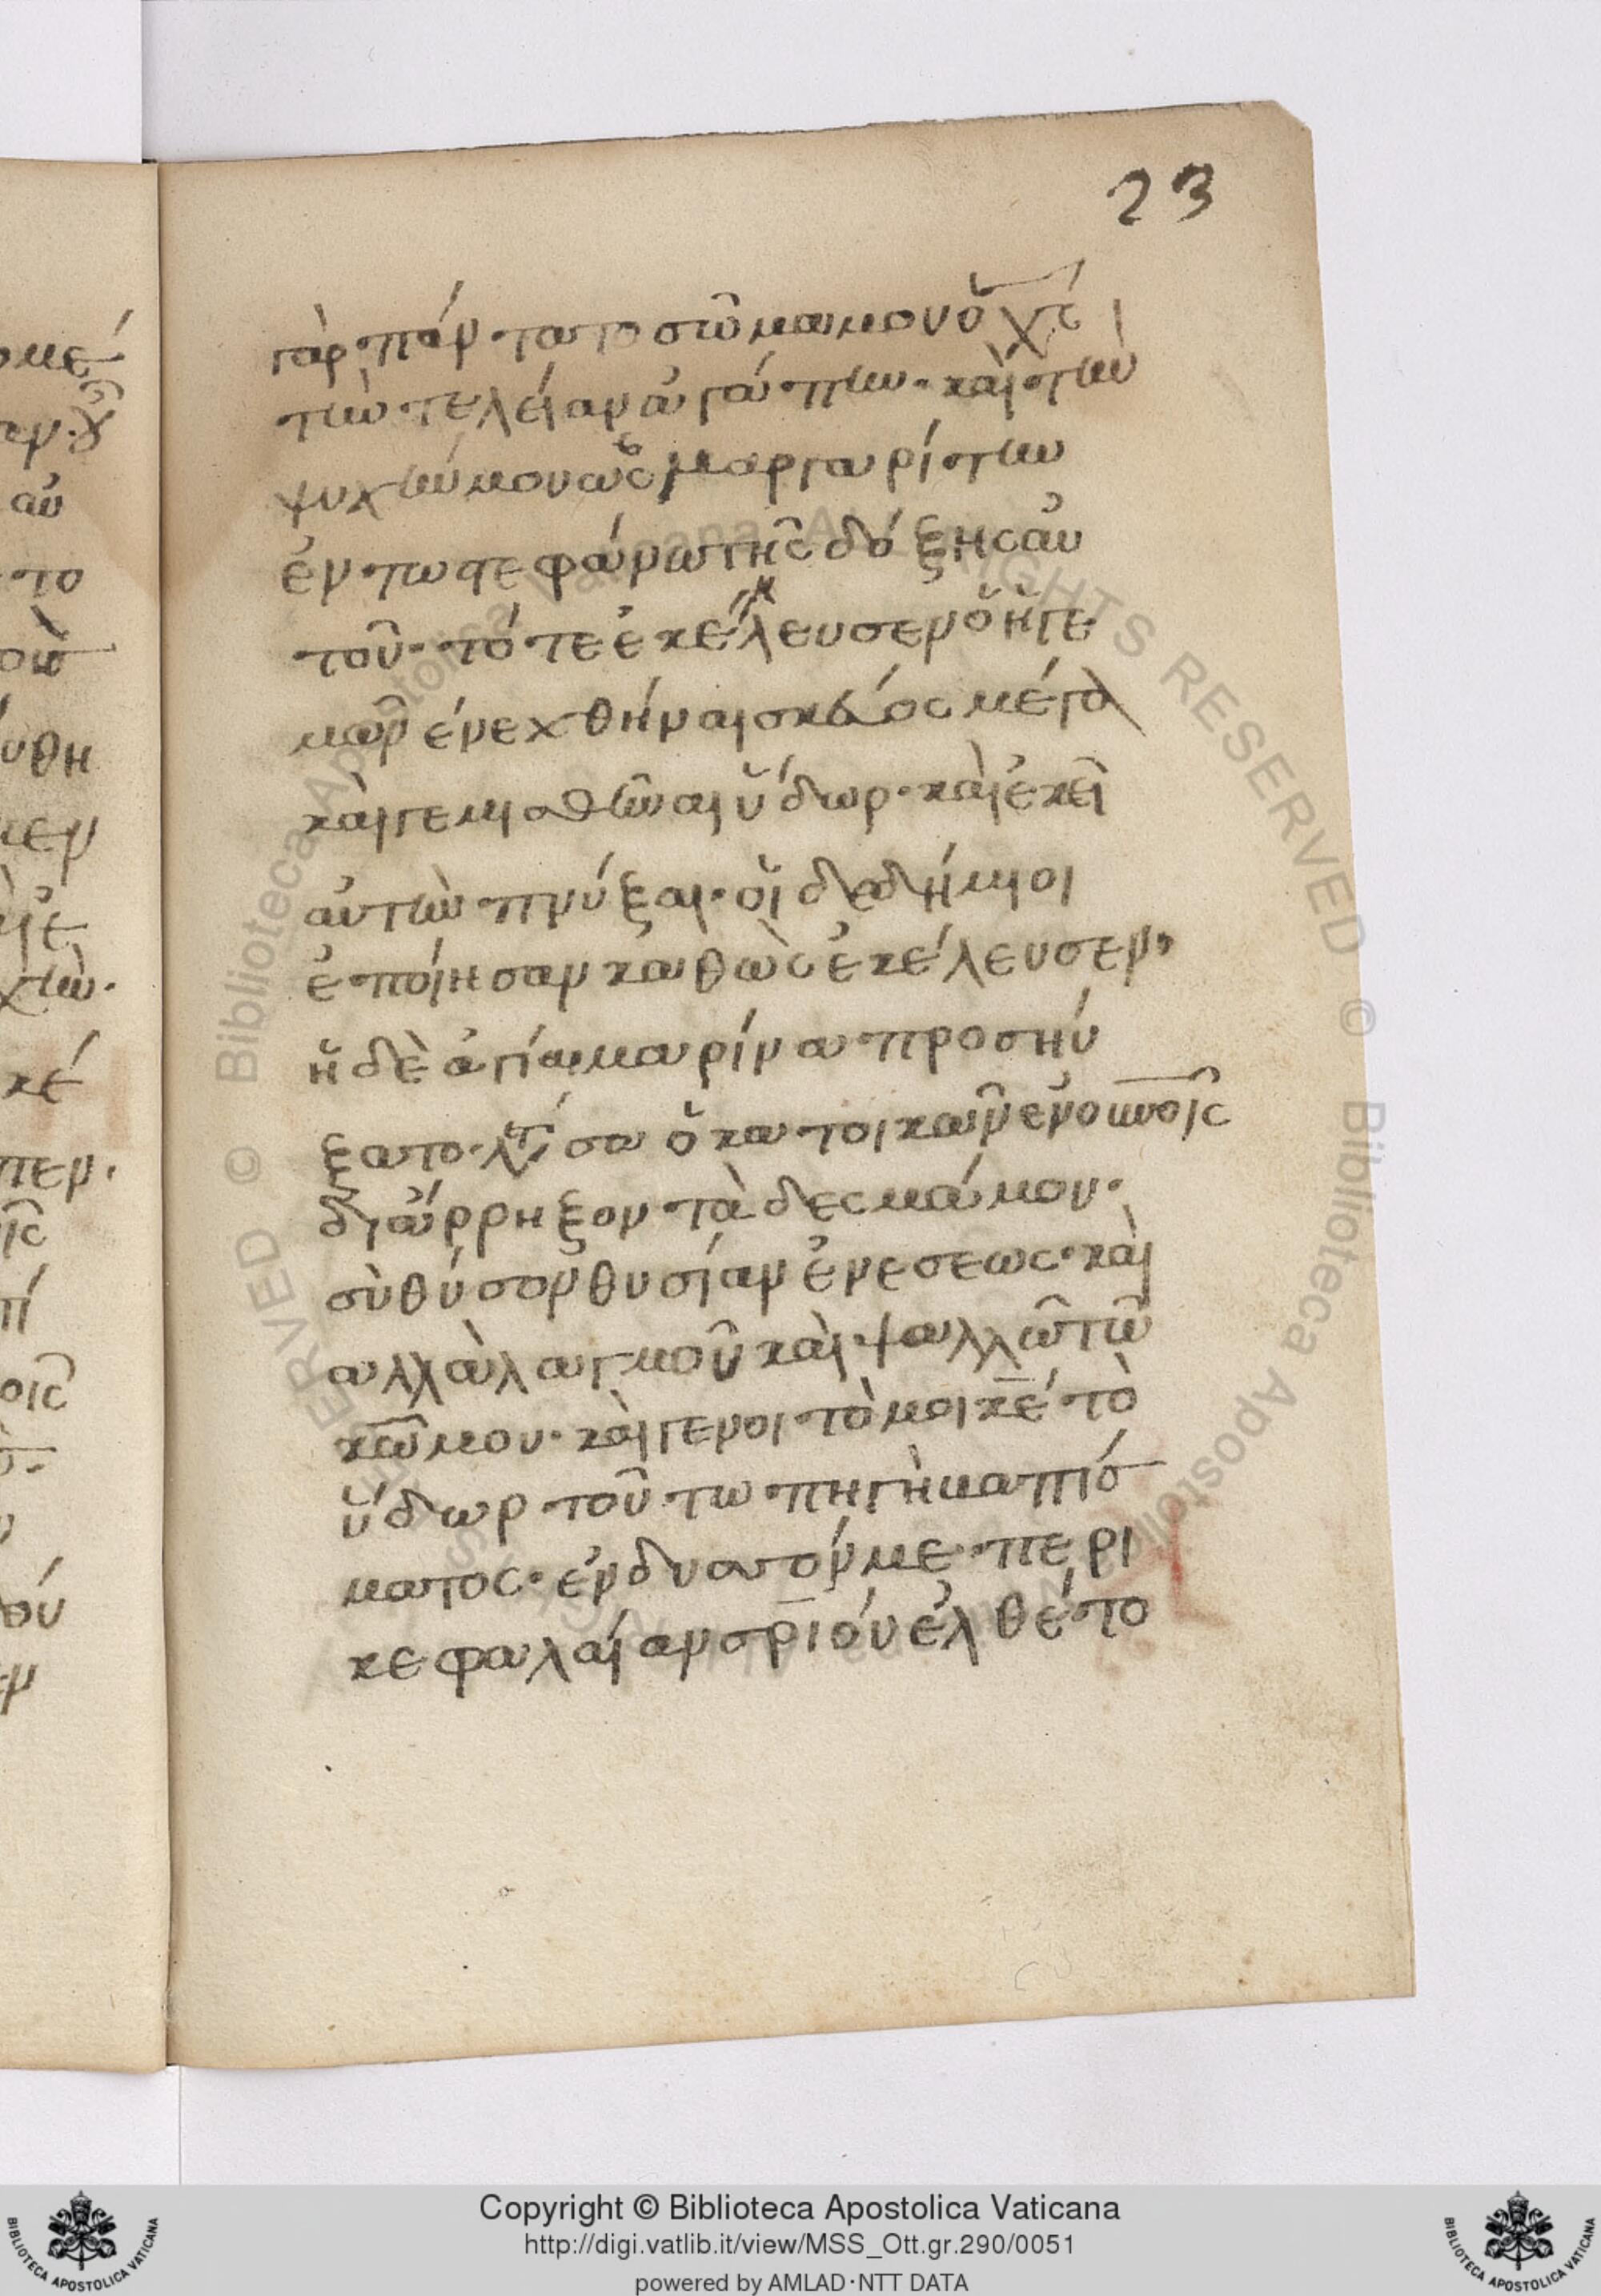 23
γὰρ πάντα τὸ σῶμα μου ὅ χς
τὴν τελείαν ἀγάπην· καὶ τὴν
ψυχήν μου ὡς μαργαρίτην
ἐν τω στεφάνω τῆς δόξης αὐ
τοῦ· τότε ἐκέλευσεν ὅ ἡγε
μῶν ἐνεχθήναι σκεύος μέγα
καὶ γεμισθῆναι ὕδωρ· καὶ ἐκεῖ
αὐτὴν πνύξαι· οἵ δὲ δήμιοι
ἐποίησαν καθὼς ἐκέλευσεν·
ἥ δὲ ἁγία μαρίνα προσηύ
ξατο· ὅ κατοικῶν ἐν οὐνοῖς
διάρρηξον τὰ δεσμά μου·
σὺ θύσον θυσίαν ἐνεσεως· καὶ
αλλαλαγμοῦ καὶ ψαλλῶ τῶ
κω μου· καὶ γενοι τό μοι κε τὸ
ὕδωρ τοῦτω πηγὴ
ματος· ἐνδυατόν με περι
κεφαλαίαν σριον ἐλθέτο
Copyright © Biblioteca Apostolica Vaticana
http://digi.vatlib.it/view/MSS_Ott.gr.290/0051
powered by AMLAD·NTT DATA